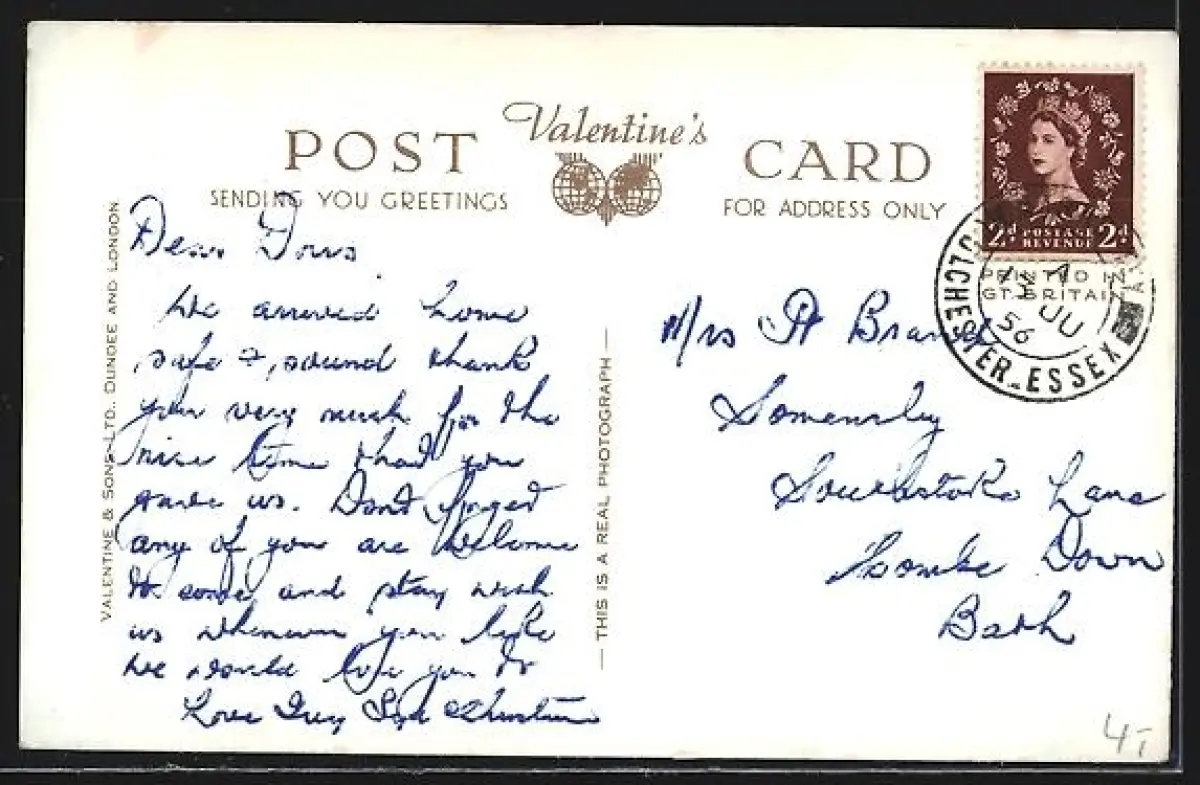 Valentine's
POST CARD
SENDING YOU GREETINGS
FOR ADDRESS ONLY
VALENTINE & SONS, LTD., DUNDEE AND LONDON
Dear Doris
We arrived home
safe & sound thank
you very much for the
nice time that you
gave us. Dont forget
any of you are welcome
to come and stay with
us whenever you like
we would love you to
Love
THIS IS A REAL PHOTOGRAPH
2d POSTAGE REVENUE 2d
PRINTED IN
GT. BRITAIN
COLCHESTER-ESSEX
56
Mrs
Southstoke Lane
Combe Down
Bath
4/-